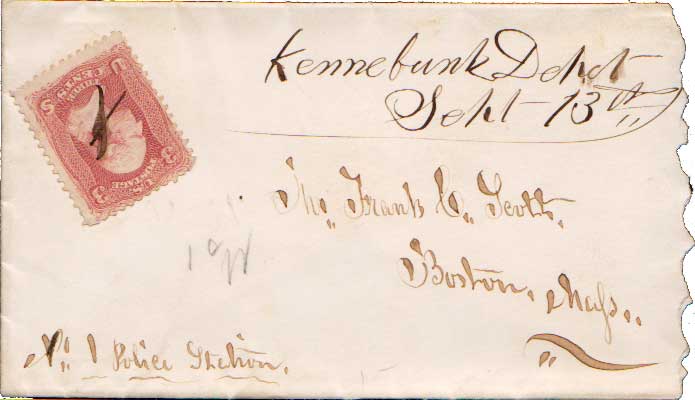 Kennebunk Depot
Sept 13th
Frank C. Scott.
Boston, Mass.
No. 1 Police Station.
U.S. POSTAGE
3
3
THREE CENTS
U
S